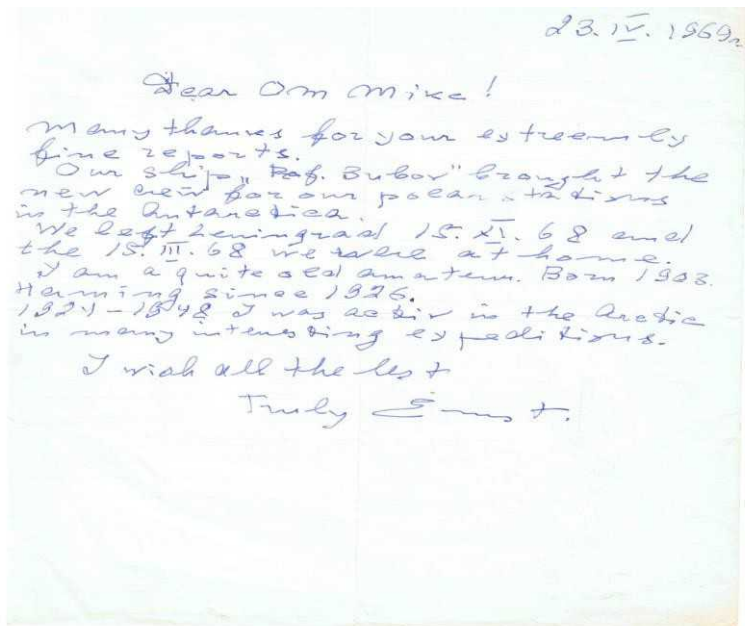 23. IV. 1969г.
Dear Om Mike!
Many thanks for your extreemly
fine reports.
Our ship „Prof. Bubov" brought the
new crew for our polar stations
in the Antarctica.
We left Leningrad 15. XI. 68 and
the 15. III. 68 we were at home.
I am a quite old amateur. Born 1903.
Haming since 1926.
I was activ in the Arctic
in many interesting expeditions.
I wish all the best
Truly Ernst.